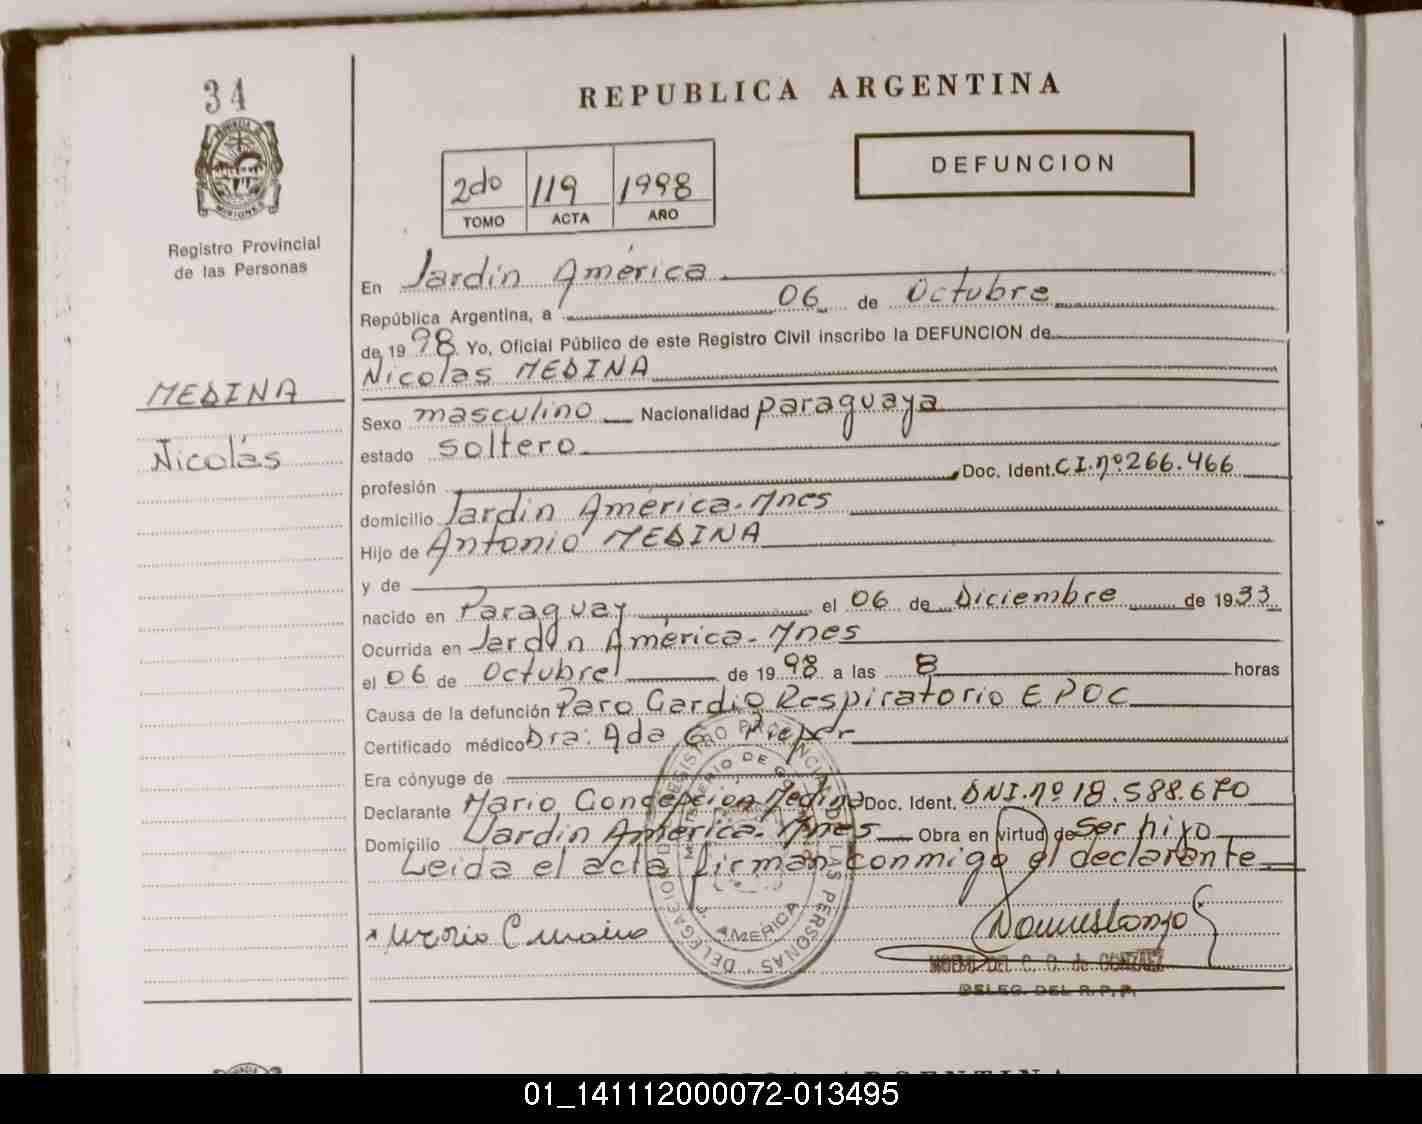 34
REPUBLICA ARGENTINA
PROVINCIA DE
MISIONES
Registro Provincial
de las Personas
2do 119 1998
TOMO ACTA AÑO
DEFUNCION
MEDINA
Nicolás
En Jardín América
República Argentina, a 06 de Octubre
de 1998. Yo, Oficial Público de este Registro Civil inscribo la DEFUNCION de
Nicolas MEDINA
Sexo masculino Nacionalidad paraguaya
estado soltero
profesión Doc. Ident. C.I. nº 266.466
domicilio Jardín América. Mnes
Hijo de Antonio MEDINA
y de
nacido en Paraguay el 06 de Diciembre de 1933
Ocurrida en Jardín América - Mnes
el 06 de Octubre de 1998 a las 8 horas
Causa de la defunción Paro Cardio Respiratorio EPOC
Certificado médico Dra: Ada G.
Era cónyuge de
Declarante Mario Concepcion Medina Doc. Ident. DNI. nº 18.588.670
Domicilio Jardin América. Mnes Obra en virtud de Ser hijo
Leida el acta firman conmigo el declarante
AMERICA
DELEG. DEL R.P.P.
REPUBLICA ARGENTINA
01_141112000072-013495